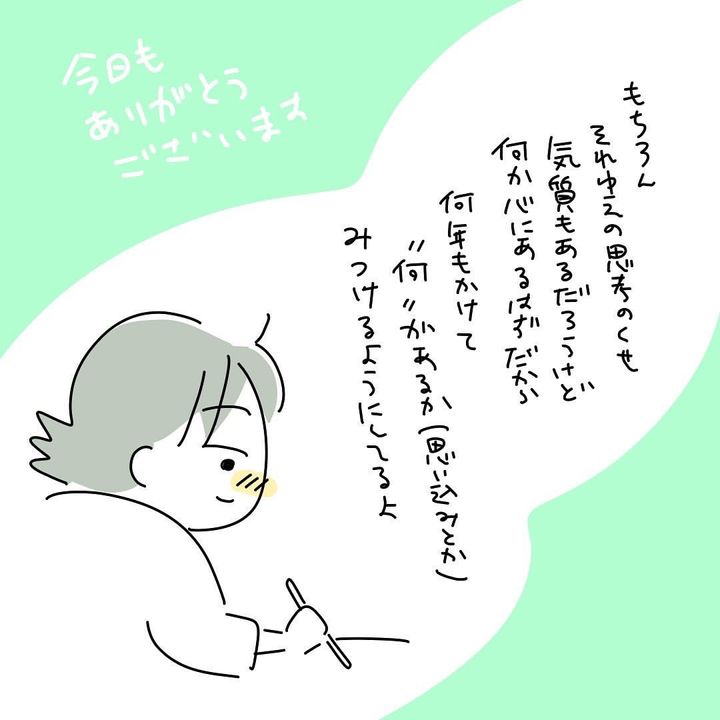 今日も
ありがとう
ございます
もちろん
それゆえの思考のくせ
気質もあるだろうけど
何か心にあるはずだから
何年もかけて
"何"があるか(思い込みとか)
みつけるようにしてるよ